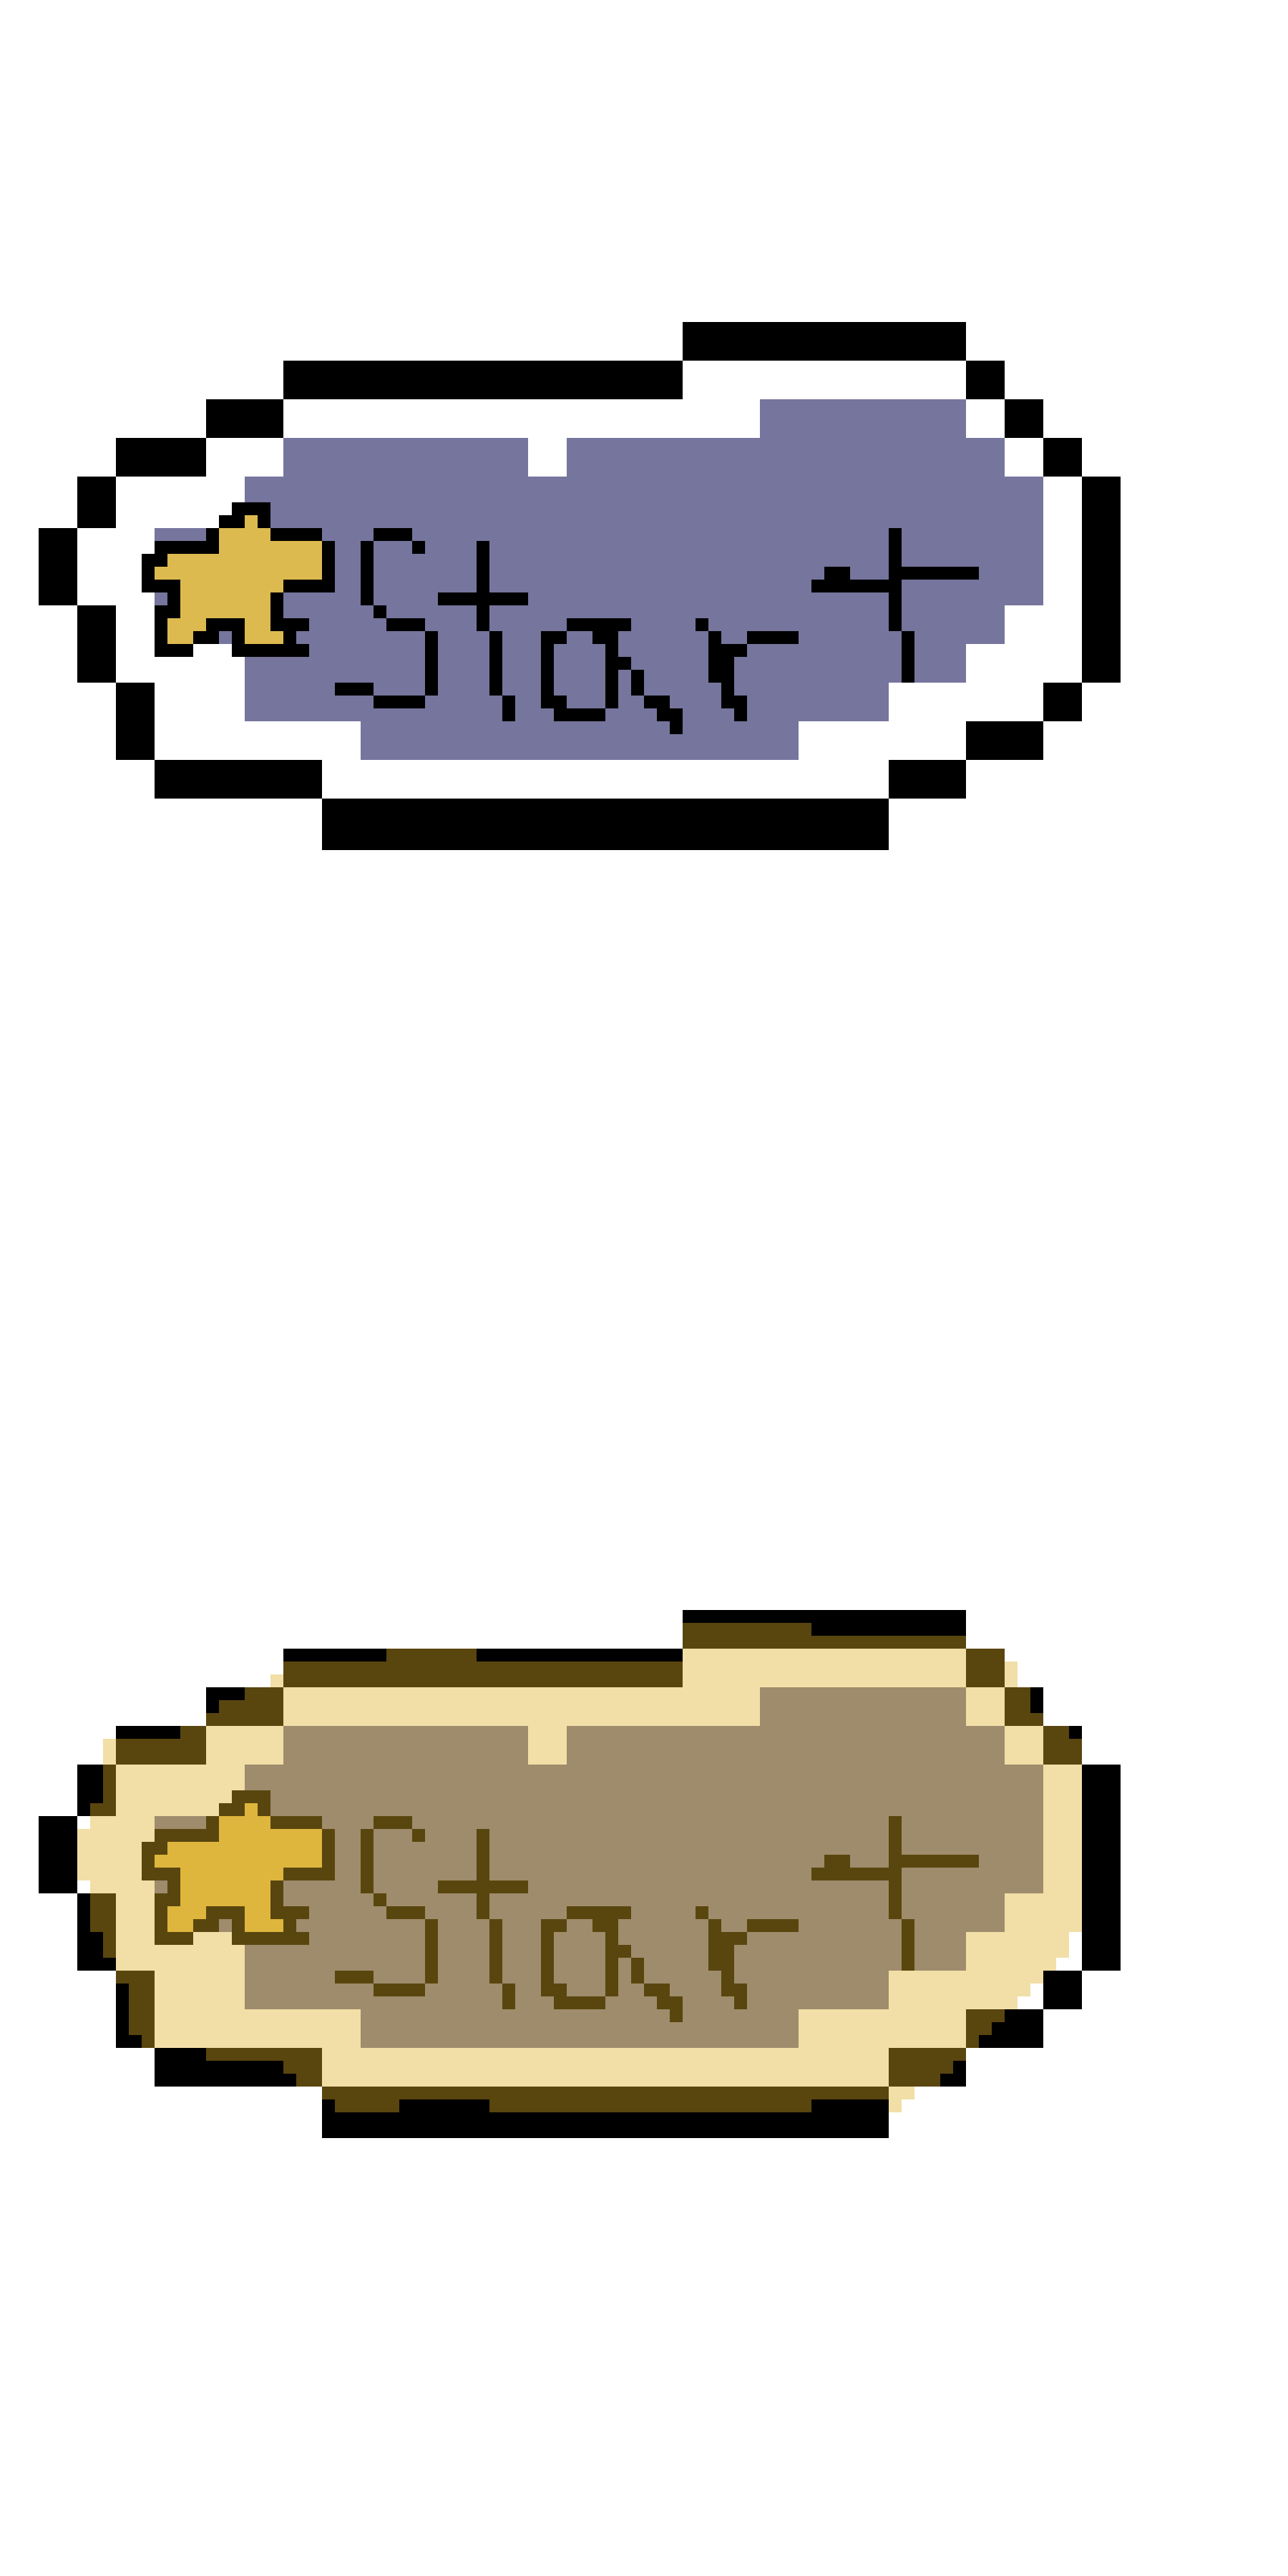 Start
Start